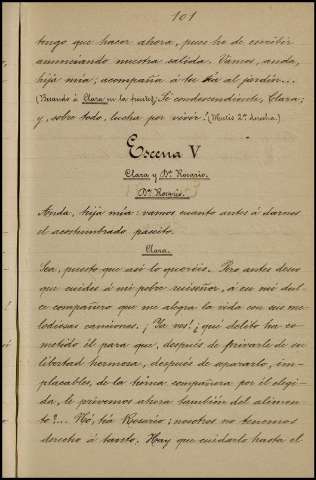 101
tengo que hacer ahora, pues he de escribir
anunciando nuestra salida. Vamos, anda,
hija mía; acompaña á tu tía al jardín...
(Besando á Clara en la frente.) Sé condescendiente, Clara;
y, sobre todo, lucha por vivir. (Mutis 2ª derecha.)
Escena V
Clara y Dª Rosario.
Dª Rosario.
Anda, hija mía: vamos cuanto antes á darnos
el acostumbrado paseito.
Clara.
Sea, puesto que así lo queréis. Pero antes deseo
que cuides á mi pobre ruiseñor, á ese mi dul-
ce compañero que me alegra la vida con sus me-
lodiosas canciones. ¡Ya ves! ¿qué delito ha co-
metido él para que, después de privarle de su
libertad hermosa, después de apararlo, im-
placables, de la tierna compañera por él elegi-
da, le privemos ahora también del alimen-
to?... No, tía Rosario; nosotros no tenemos
derecho á tanto. Hay que cuidarlo hasta el